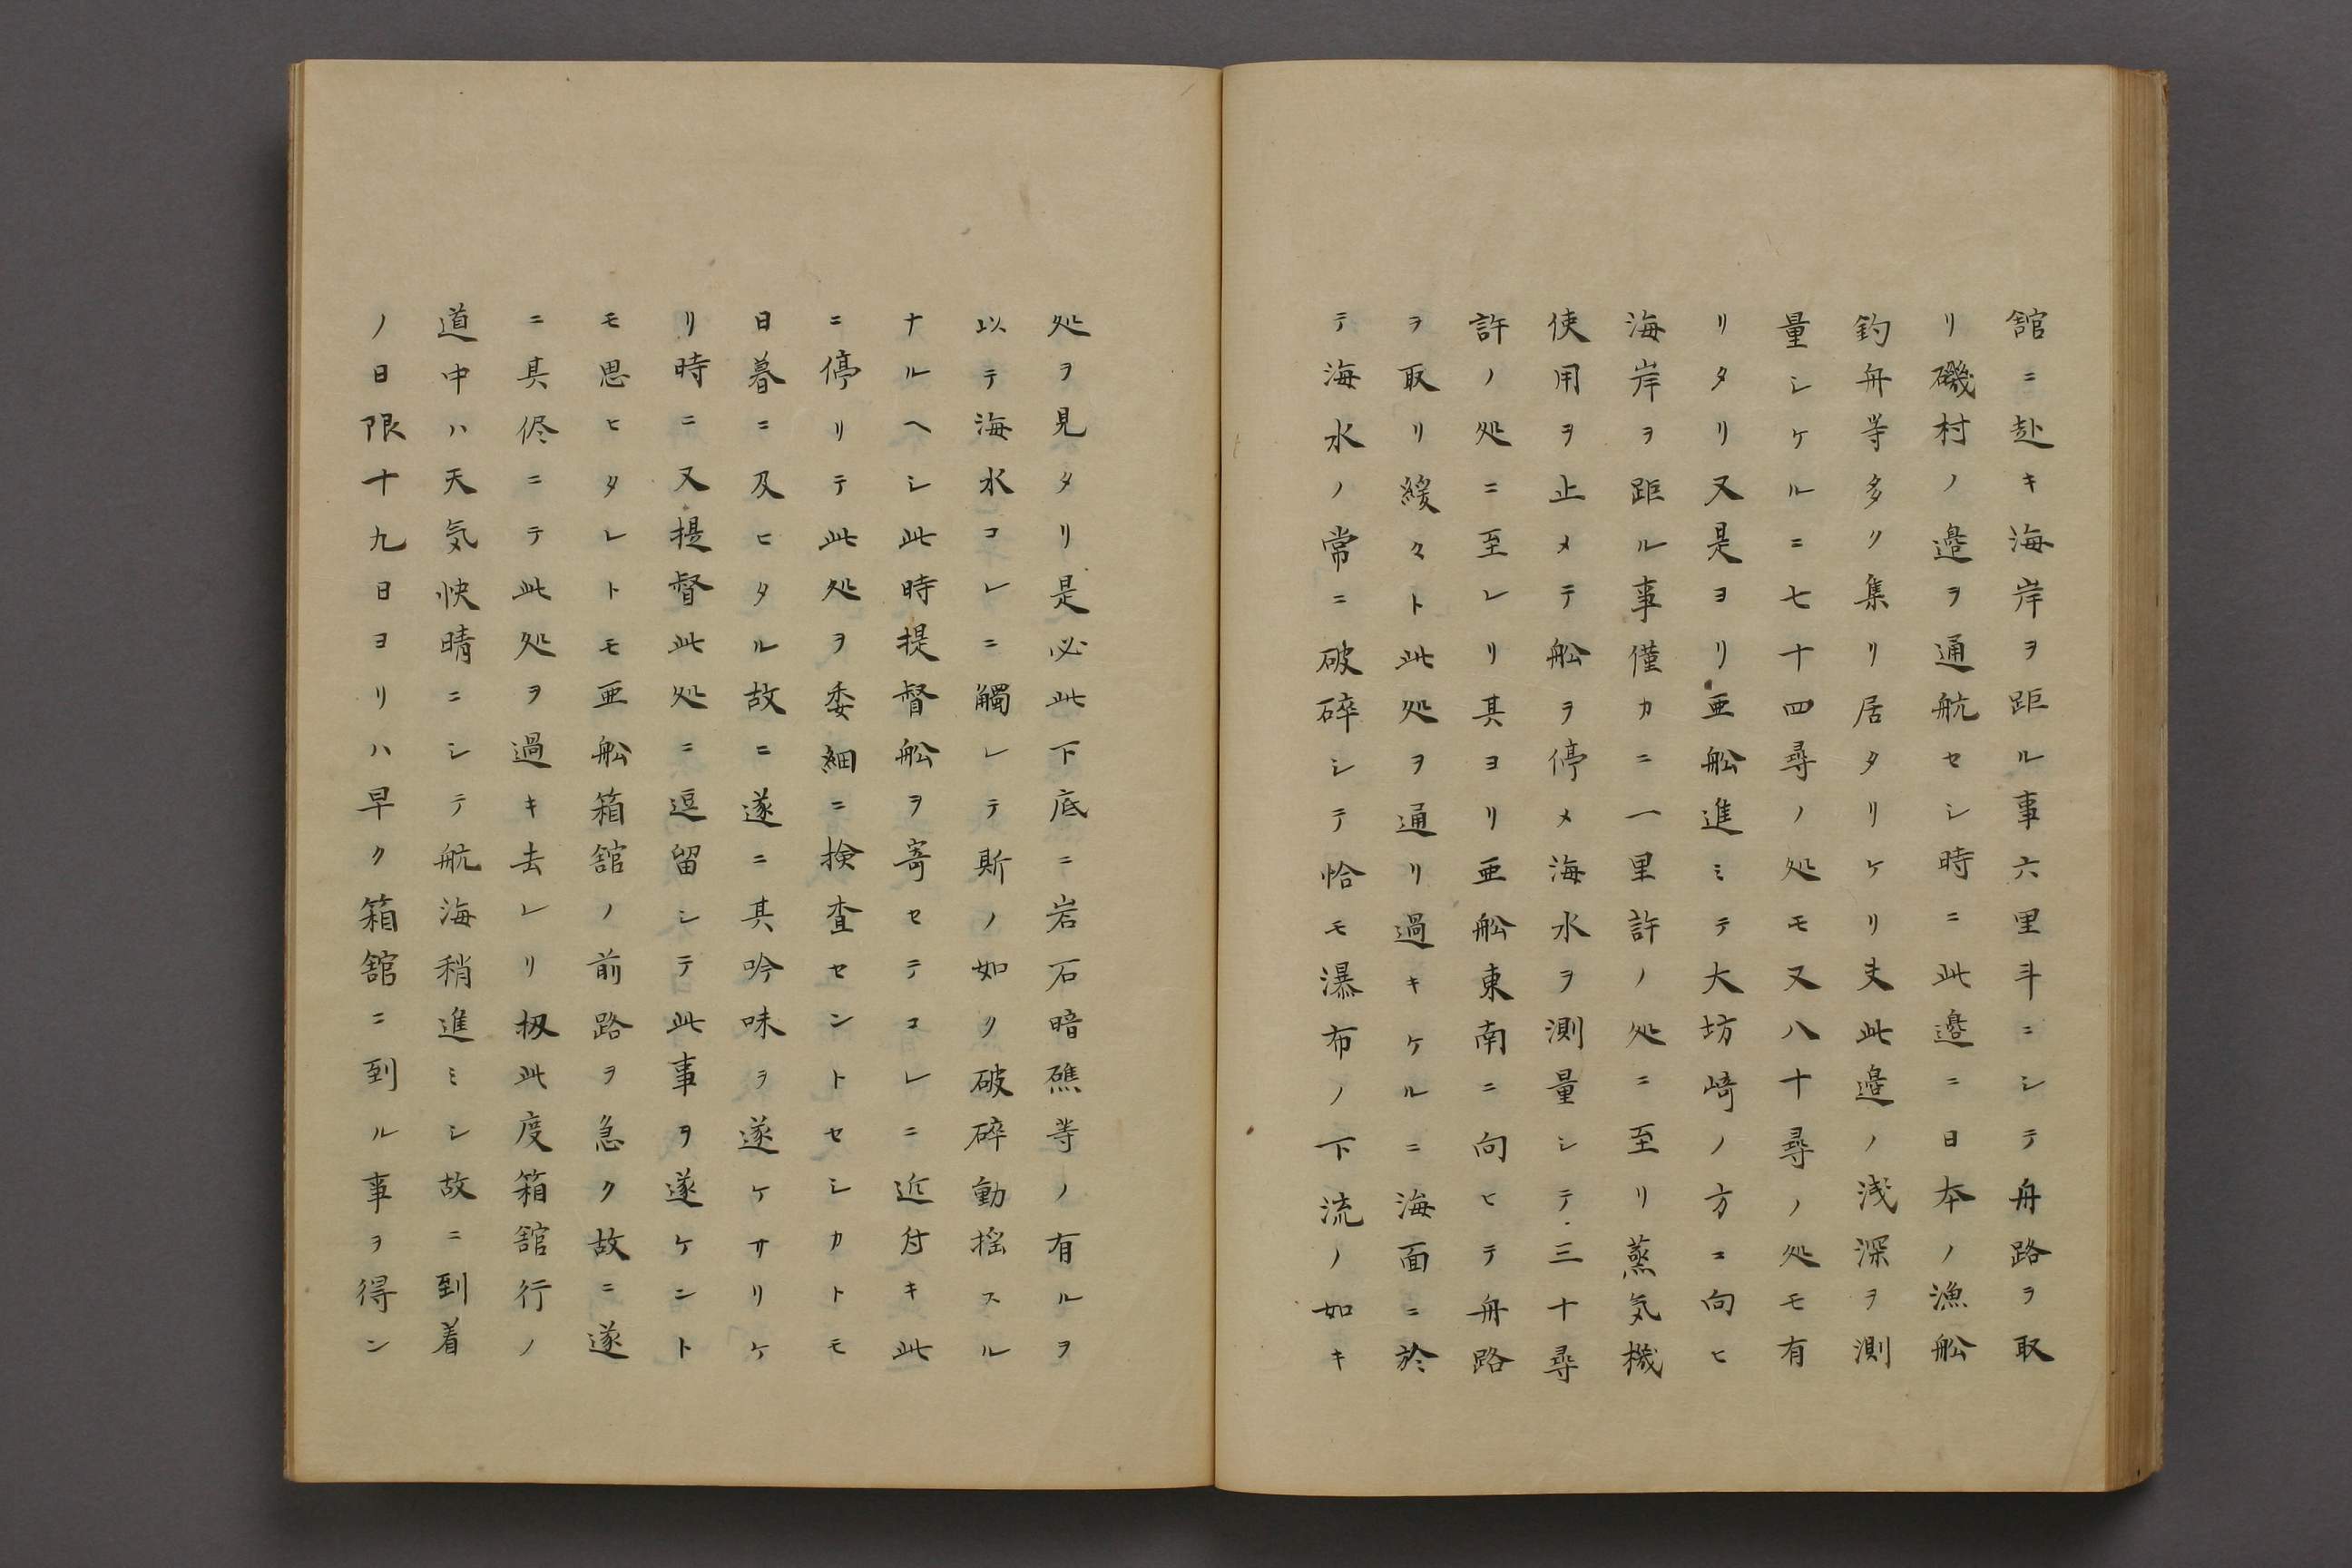 舘ニ赴キ海岸ヲ距ル事六里斗ニシテ舟路ヲ取
リ磯村ノ邉ヲ通航セシ時ニ此邉ニ日本ノ漁舩
釣舟等多ク集リ居タリケリ夫此邉ノ浅深ヲ測
量シケルニ七十四尋ノ処モ又八十尋ノ処モ有
リタリ又是ヨリ亜舩進ミテ大坊﨑ノ方ニ向ヒ
海岸ヲ距ル事僅カニ一里許ノ処ニ至リ蒸気機
使用ヲ止メテ舩ヲ停メ海水ヲ測量シテ三十尋
許ノ処ニ至レリ其ヨリ亜舩東南ニ向ヒテ舟路
ヲ取リ緩々ト此処ヲ通リ過キケルニ海面ニ於
テ海水ノ常ニ破碎シテ恰モ瀑布ノ下流ノ如キ
処ヲ見タリ是必此下底ニ岩石暗礁等ノ有ルヲ
以テ海水コレニ觸レテ斯ノ如ク破碎動揺スル
ナルヘシ此時提督舩ヲ寄セテコレニ近付キ此
ニ停リテ此処ヲ委細ニ検査セントセシカトモ
日暮ニ及ヒタル故ニ遂ニ其吟味ヲ遂ケサリケ
リ時ニ又提督此処ニ逗留シテ此事ヲ遂ケント
モ思ヒタレトモ亜舩箱舘ノ前路ヲ急ク故ニ遂
ニ其侭ニテ此処ヲ過キ去レリ扨此度箱舘行ノ
道中ハ天気快晴ニシテ航海稍進ミシ故ニ到着
ノ日限十九日ヨリハ早ク箱舘ニ到ル事ヲ得ン